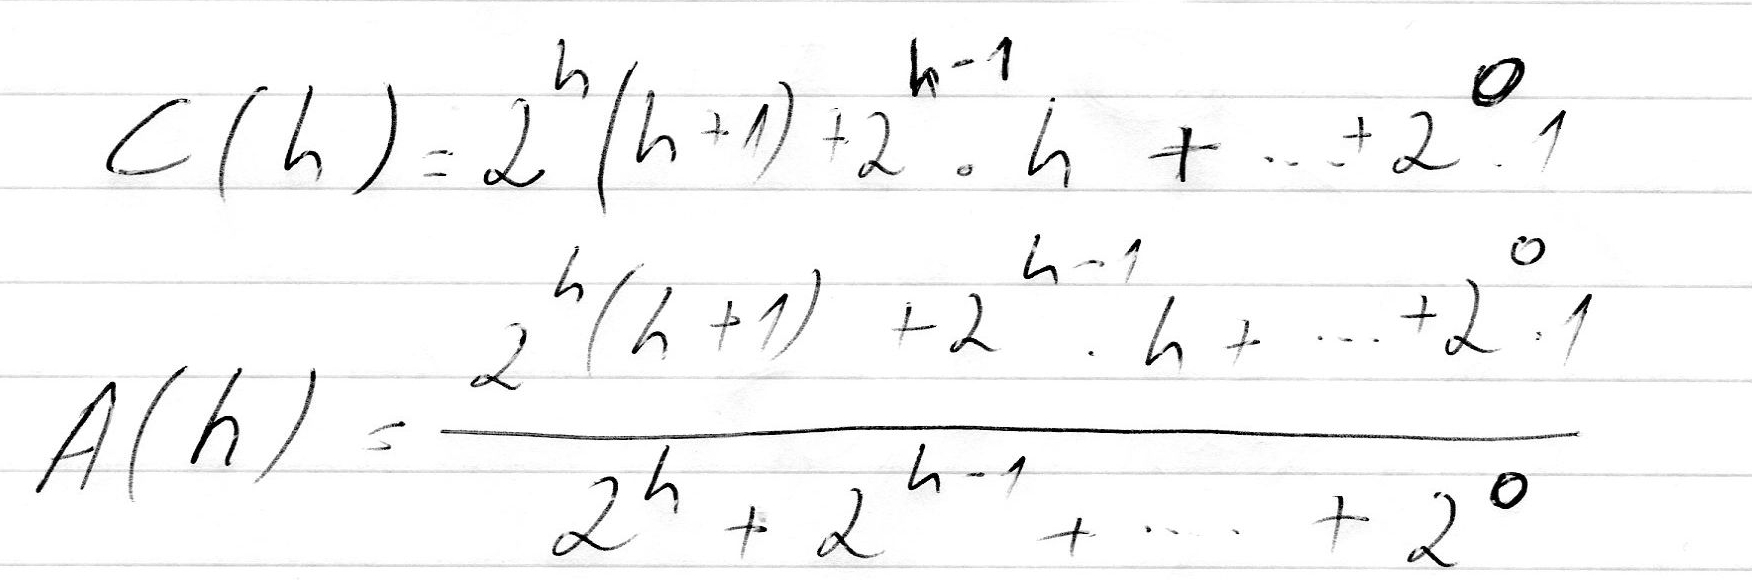 C(h) = 2^h (h+1) + 2^{h-1} · h + ... + 2^0 · 1
A(h) = \frac{2^h (h+1) + 2^{h-1} · h + ... + 2^0 · 1}{2^h + 2^{h-1} + .... + 2^0}